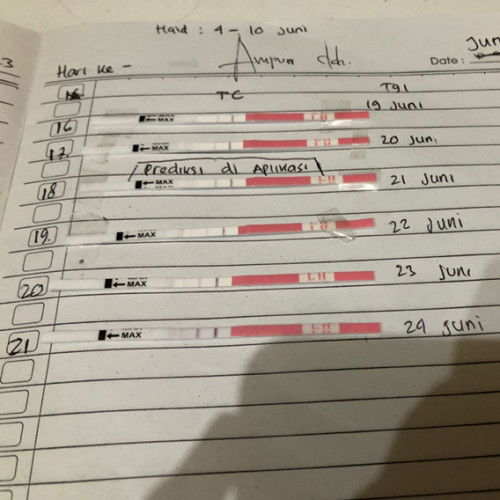 Haid : 4 - 10 Juni
Jun
Date:
Hari ke -
TC
Tgl
19 Juni
16
MAX
LH
17
MAX
LH
20 Juni
Prediksi di Aplikasi
18
MAX
LH
21 Juni
19.
MAX
LH
22 Juni
20
MAX
LH
23 Juni
21
MAX
LH
24 Juni